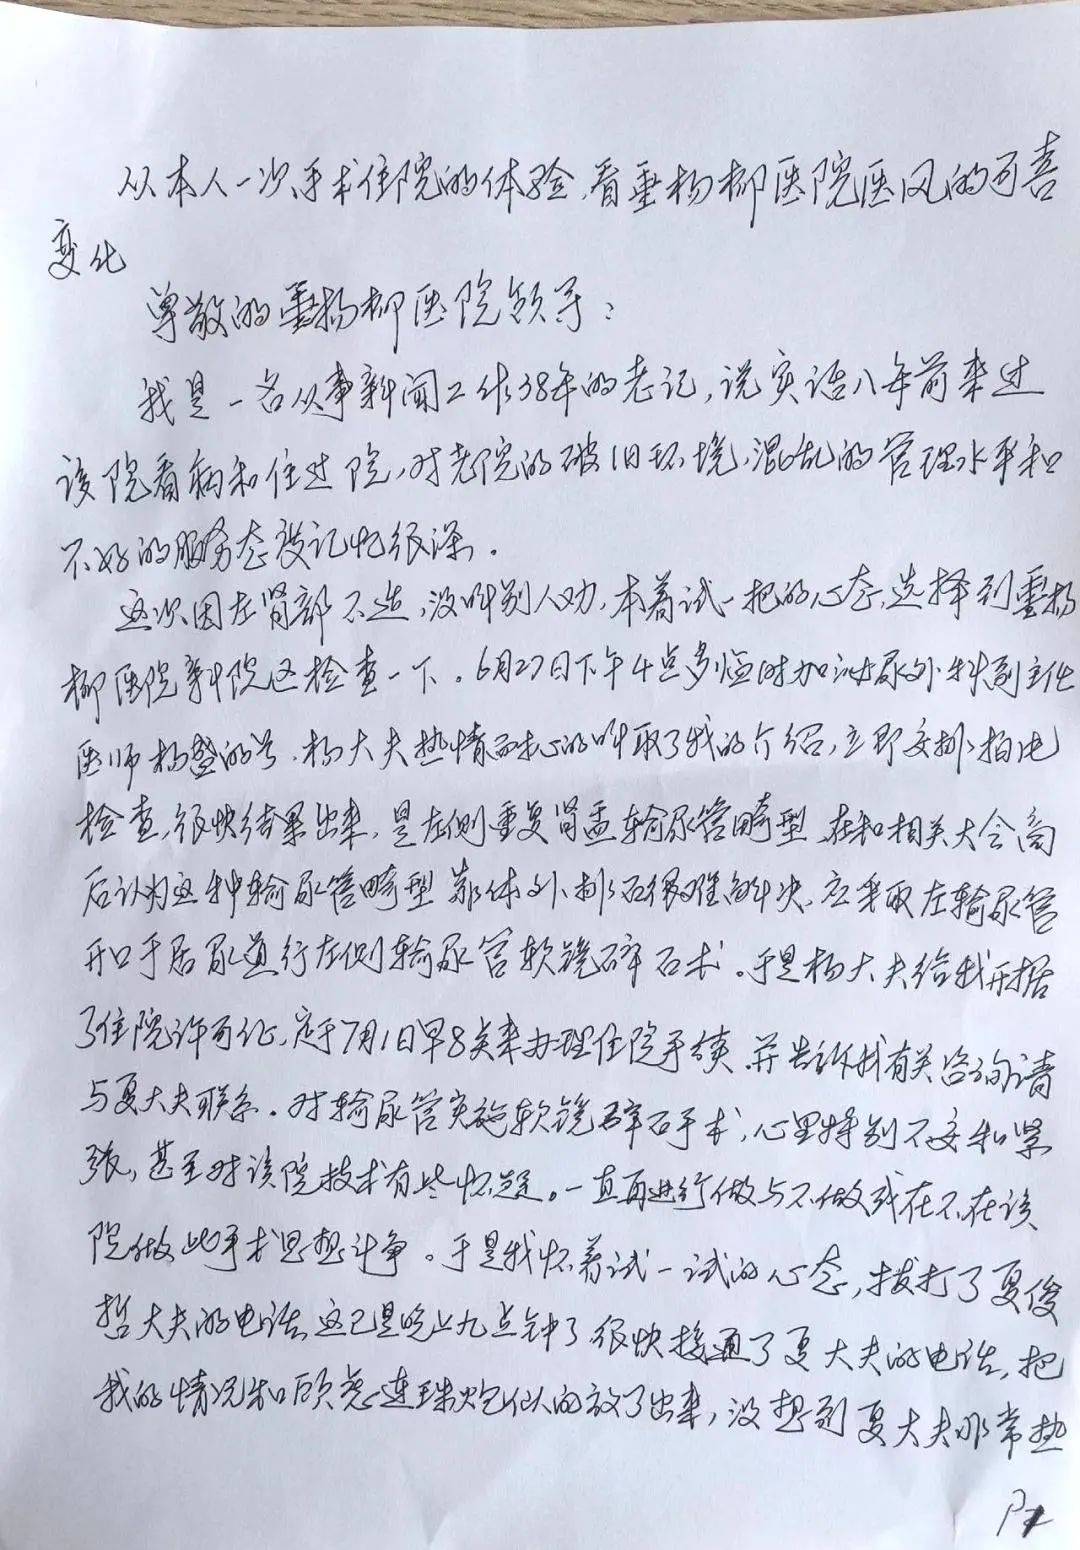 从本人一次手术住院的体验,看垂杨柳医院医风的可喜
变化
尊敬的垂杨柳医院领导:
我是一名从事新闻工作38年的老记,说实话八年前来过
该院看病和住过院,对老院的破旧环境,混乱的管理水平和
不好的服务态度记忆很深.
这次因左肾部不适,没听别人劝,本着试一把的心态,选择到垂杨
柳医院新院区检查一下。6月27日下午4点多临时加泌尿外科副主任
医师杨盛的号,杨大夫热情而耐心的听取了我的介绍,立即安排拍片
检查,很快结果出来,是左侧重复肾盂输尿管畸型,在和相关大会商
后认为这种输尿管畸型靠体外排石很难解决,应采取左输尿管
开口于后尿道行左侧输尿管软镜碎石术。于是杨大夫给我开据
了住院许可证,定于7月1日早8点来办理住院手续,并告诉我有关咨询请
与夏大夫联系。对输尿管实施软镜碎石手术,心里特别不安和紧
张,甚至对该院技术有些怀疑。一直再进行做与不做或在不在该
院做此手术思想斗争。于是我怀着试一试的心态,拨打了夏俊
哲大夫的电话,这已是晚上九点钟了,很快接通了夏大夫的电话,把
我的情况和顾虑连珠炮似的放了出来,没想到夏大夫非常热
P1